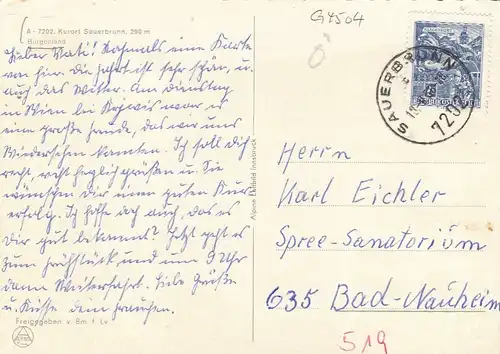 G4504
A - 7202. Kurort Sauerbrunn, 290 m
Burgenland
Lieber Vati! Nochmals eine Karte
von hier. Die Fahrt ist sehr schön, u.
auch das Wetter. Am Dienstag
in Wien bei war es
eine große Freude, das wir uns
Wiedersehen konnten. Ich soll dich
recht, recht herzlich grüßen u. Sie
wünschen dir einen guten Kur-
erfolg. Ich hoffe doch auch, das es
dir gut bekommt? Jetzt geht es
zum Frühstück und um 9 Uhr
dann Weiterfahrt. Liebe Grüße
und Küsse dein
Freigegeben v. Bm. f. Lv.
Alpine Luftbild Innsbruck
SAUERBRUNN
720
Herrn
Karl Eichler
Spree-Sanatorium
635 Bad-Nauheim
519